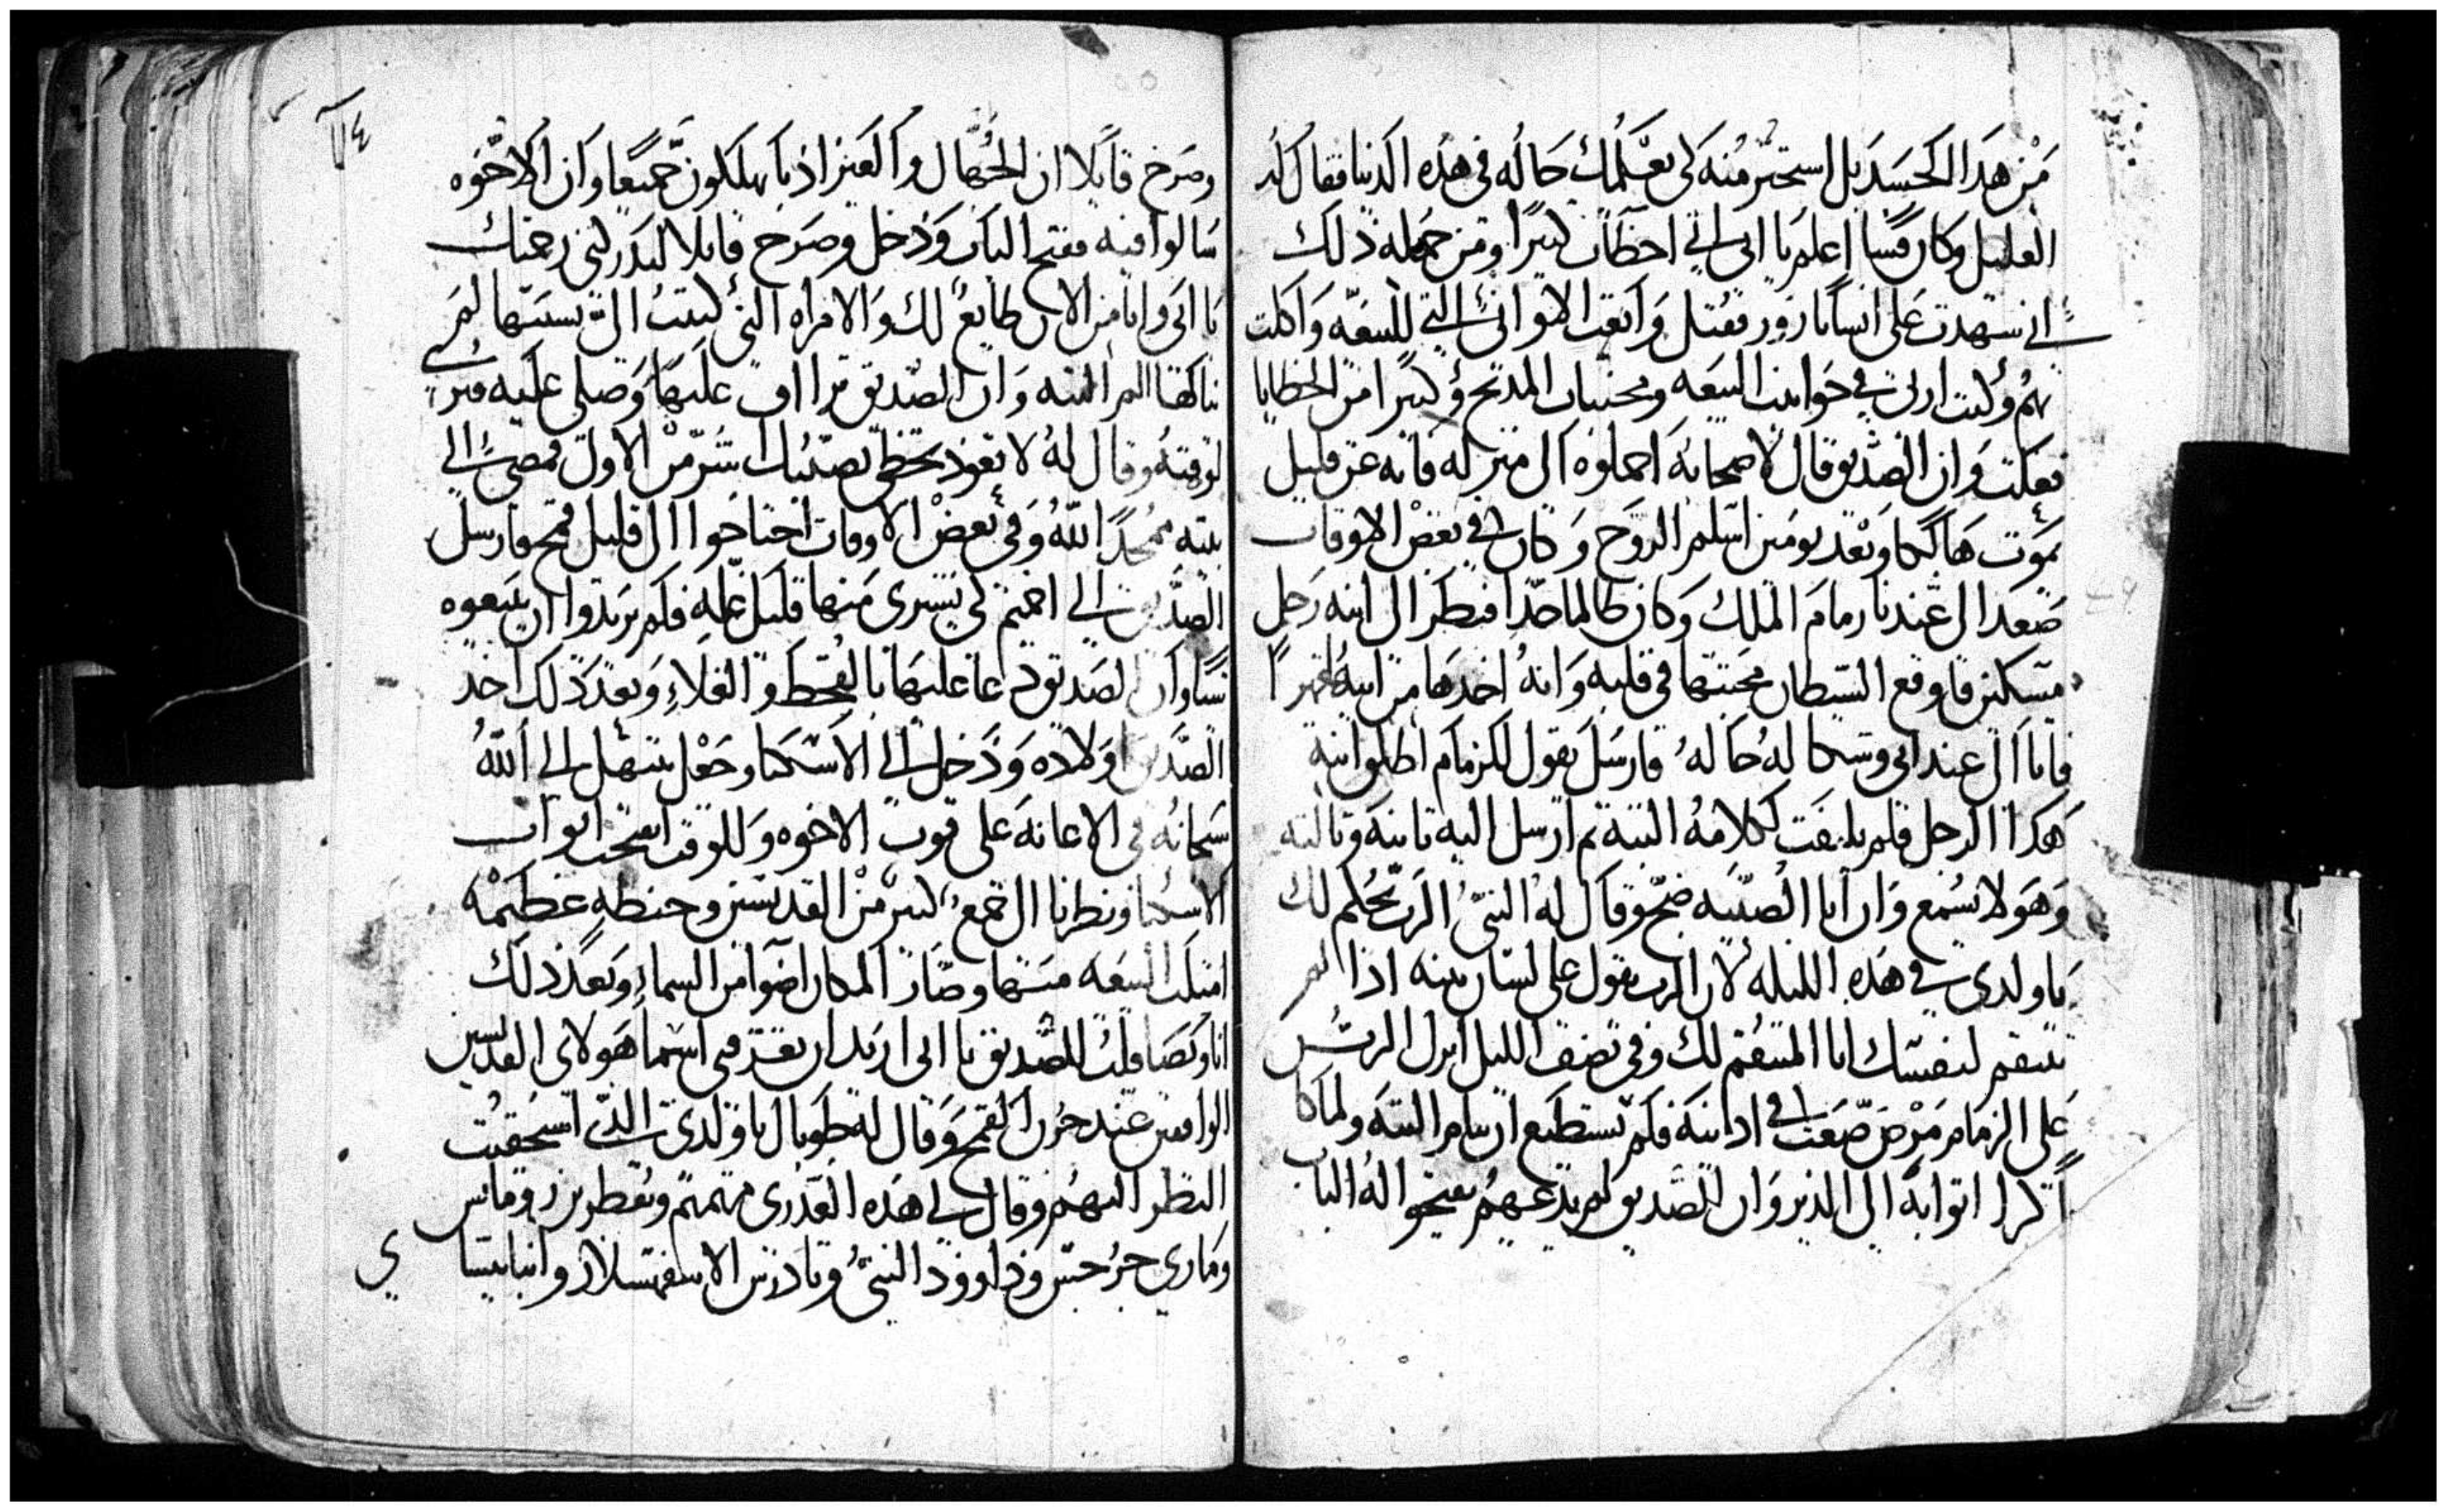 من هدا الجسد بل استخبر منه لكي يعلمك حاله في هده الدنيا فقال له
العليل وكان قسا اعلم يا ابي اني اخطات كتيرا ومن جمله دلك
اني شهدت على انسانا زور فقتل وابعت الاواني التي للبيعه واكلت
تمنهم وكنت ازني في حوانيت البيعه ومجنبات المدبح وكتيرا من الخطايا
فعلت وان الصديق قال لاصحابه احملوه الى منزله فانه عن قليل
يموت هالكا وبعد يومين اسلم الروح وكان في بعض الاوقات
صعد الى عندنا زمام الملك وكان ظالما جدا فنظر الى ابنه رجل
مسكين فاوقع الشيطان محبتها في قلبه وانه اخدها من ابيها قهرا
فاتا الى عند ابي وشكا له حاله فارسل يقول للزمام اطلق ابنه
هدا الرجل فلم يلتفت لكلامه البته تم ارسل اليه تانيه وتالته
وهو لا يسمع وان ابا الصبيه ضج وقال له النبي الرب يحكم لك
يا ولدي في هده الليله لان الرب يقول على لسان نبيه ادا لم
تنتقم لنفسك انا المنتقم لك وفي نصف الليل انزل الرب
على الزمام مرض صعب في ادانيه فلم يستطيع ان ينام البته ولما كان
اكرا اتوا به الى الدير وان الصديق لم يدعهم يفتحوا له الباب
١٤
وصرخ قايلا ان الجهال والعير اديا يهلكون جميعا وان الاخوه
سالوا فيه ففتح الباب ودخل وصرخ قايلا لتدركني رحمتك
يا ابي وانا من الان طايع لك والامراه التي كتبت الي بسببها لم
ناكفها البته وان الصديق تراءف عليها وصلى عليه فبرئ
لوقته وقال له لا تعود تخطي يصيبك اشر من الاول فمضى الى
بيته ممجدا الله وفي بعض الاوقات احتاجوا الى قليل قمح فارسل
الصديق الى اخميم لكي يشتري منها قليل غله فلم يريدوا ان يبيعوه
شيا وان الصديق دعا عليها بالقحط والغلاء وبعد دلك اخد
الصديق اولاده ودخل الى الاسكنا وجعل يبتهل الى الله
سبحانه في الاعانه على قوت الاخوه وللوقت انفتحت ابواب
الاسكنا ونظرنا الى جمع كتير من القديسين وحنطه عظيمه
امتلت البيعه منها وصار المكان اضوا من السماء وبعد دلك
انا ويصا قلت للصديق يا ابي اريد ان تعرفني اسما هولاى القديسين
الواقفين عند جرن القمح وقال له طوباك يا ولدي الدي استحقيت
النظر اليهم وقال لي هده العدري مريم وبقطر بن رومانس
وماري جرجس وداوود النبي وتادرس الاسفهسلار وانبا بيشا
ي